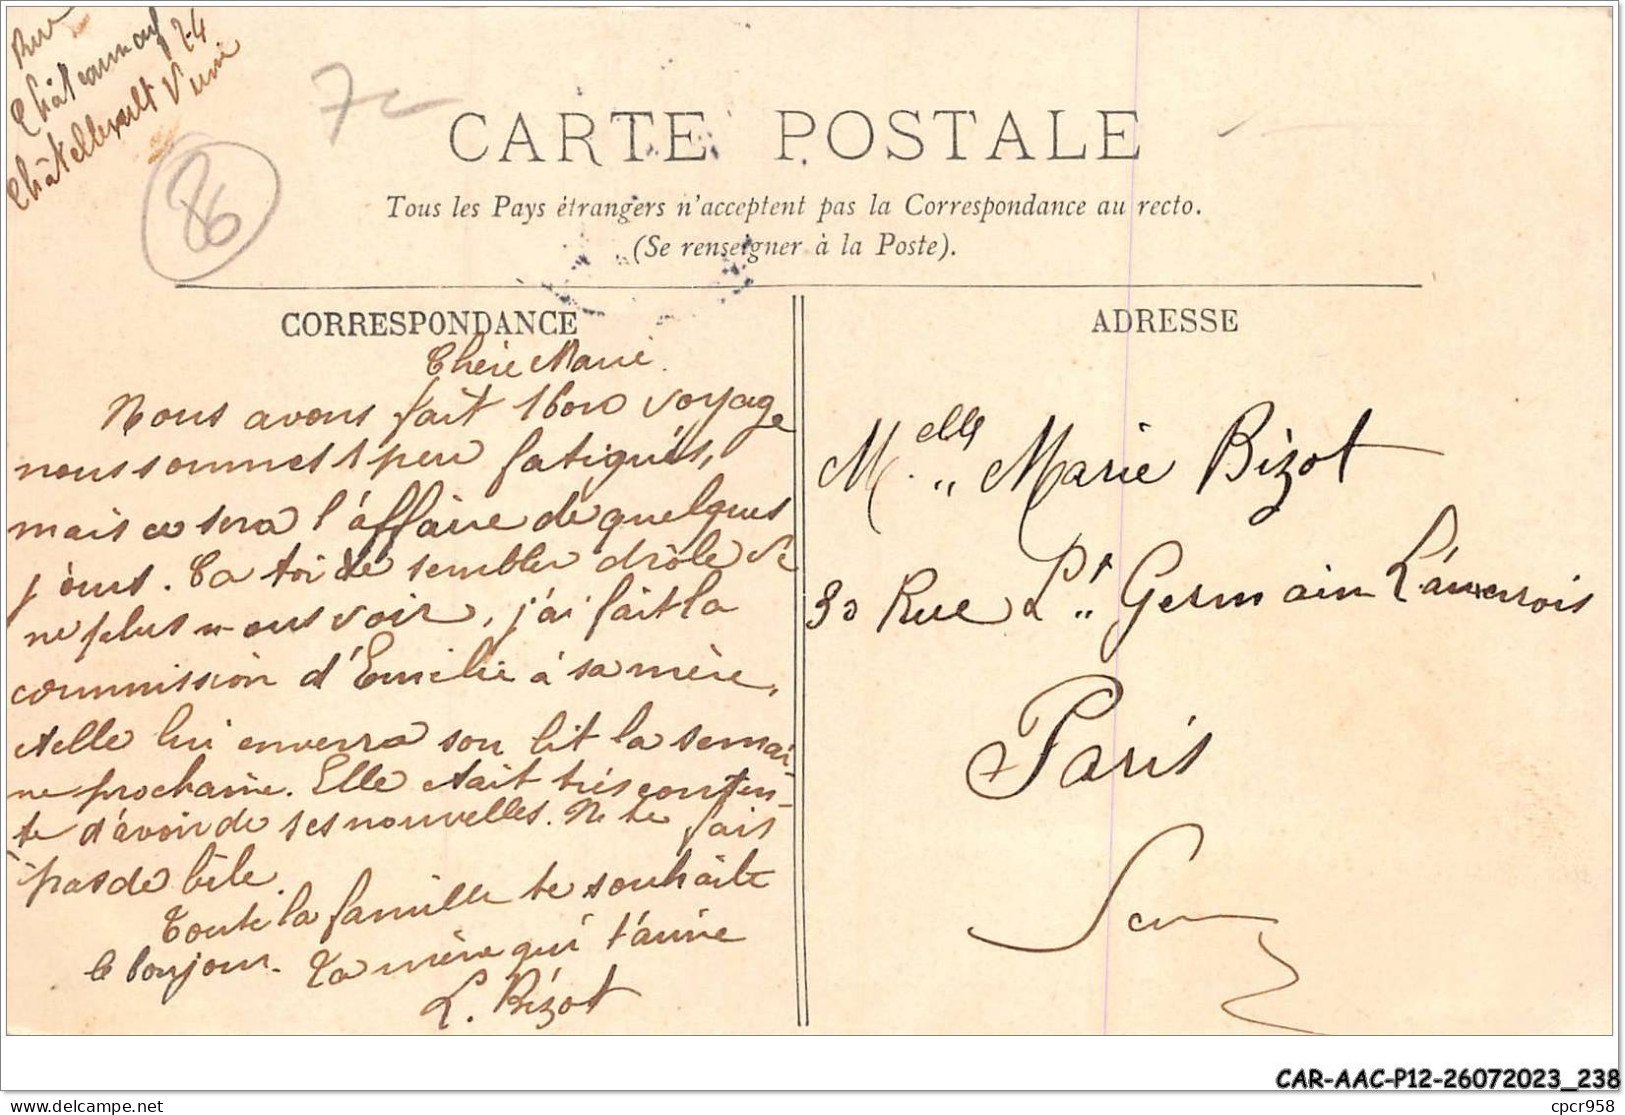 Rue
Châteauneuf 24
Châtellerault Vienne
7c
86
CARTE POSTALE
Tous les Pays étrangers n'acceptent pas la Correspondance au recto.
(Se renseigner à la Poste).
CORRESPONDANCE
Chère Marie.
Nous avons fait 1 bon voyage
nous sommes 1 peu fatigués,
mais ce sera l'affaire de quelques
jours. Ca toi te sembler drôle de
ne plus nous voir, j'ai fait la
commission d'Emilie à sa mère,
et elle lui enverra son lit la semai-
ne prochaine. Elle était très conten-
te d'avoir de ses nouvelles. Ne te fais
pas de bile.
Toute la famille te souhaite
le bonjour. Ta mère qui t'aime
L. Bizot
ADRESSE
Melle Marie Bizot
30 Rue St Germain L'auxerrois
Paris
Seine
CAR-AAC-P12-26072023_238
delcampe.net
cpcr958